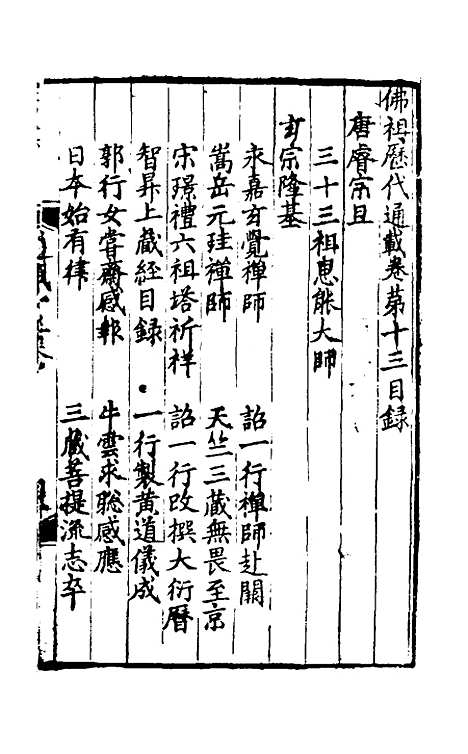 佛祖歷代通載卷第十三目錄
唐睿宗旦
三十三祖惠能大師
玄宗隆基
永嘉玄覺禪師　詔一行禪師赴闕
嵩岳元珪禪師　天竺三藏無畏至京
宋璟禮六祖塔祈祥　詔一行改撰大衍曆
智昇上藏經目錄　一行製黃道儀成
郭行女嘗齋感報　牛雲求聰感應
日本始有律　三藏菩提流志卒